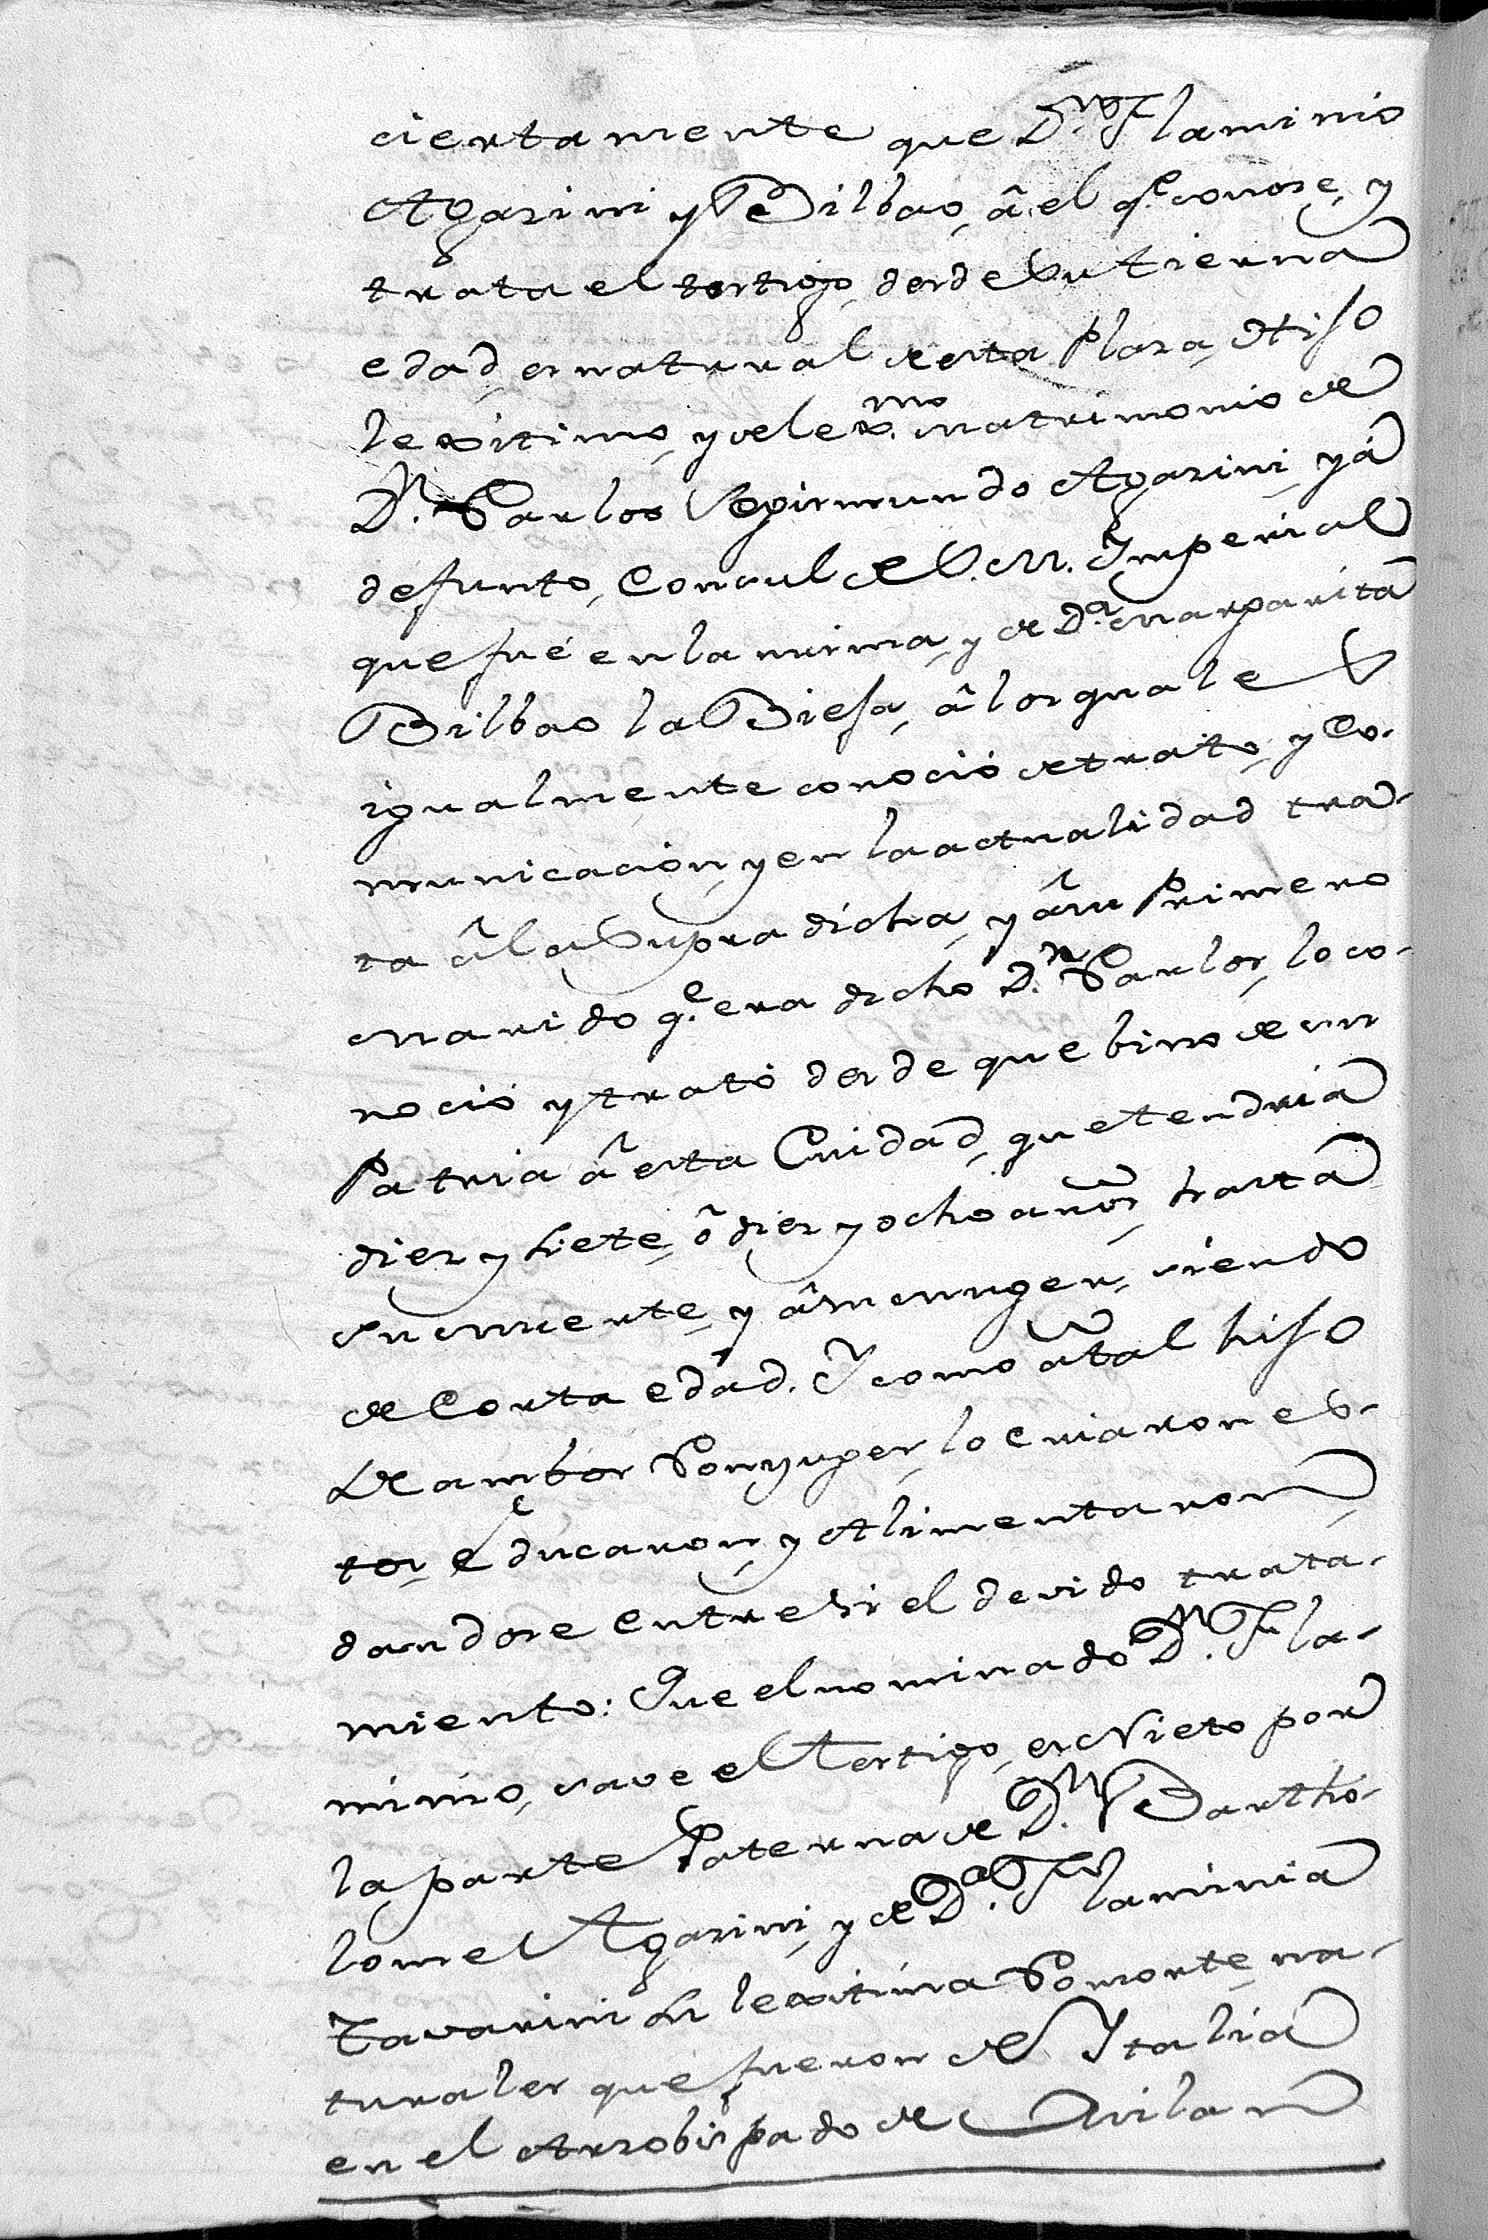 ciertamente que Dn. Flaminio
Agazini y Bilbao, â el qe. conose, y
trata el testigo, desde su tierna
edad, es natural de esta Plaza, Hijo
lexitimo, y de lexmo. matrimonio de
Dn. Carlos Segismundo Agazini, yá
defunto, Consul de S. M. Imperial
que fué en la misma, y de Da. Margarita
Bilbao la Biefa, â los quales
igualmente conoció de trato, y Co-
municacion, y en la actualidad tra-
ta â la Supra dicha, y â su Primero
Marido qe. era dicho Dn. Carlos, lo co-
noció y trató desde que bino de su
Patria â esta Cuidad, que tendria
diez y siete, ô diez y ocho años, hasta
su muerte, y â su muger, siendo
de Corta edad. Y como â tal hijo
de ambos Conyuges, lo criaron es-
tos, educaron, y Alimentaron,
dandose entre si el devido trata-
miento: Que el nominado Dn. Fla-
minio, save el Testigo, es Nieto por
la parte Paterna de Dn. Bartho-
lome Agazini, y de Da. Flaminia
Tavarini su lexitima Consorte, na-
turales que fueron de Italia
en el Arzobispado de Milan